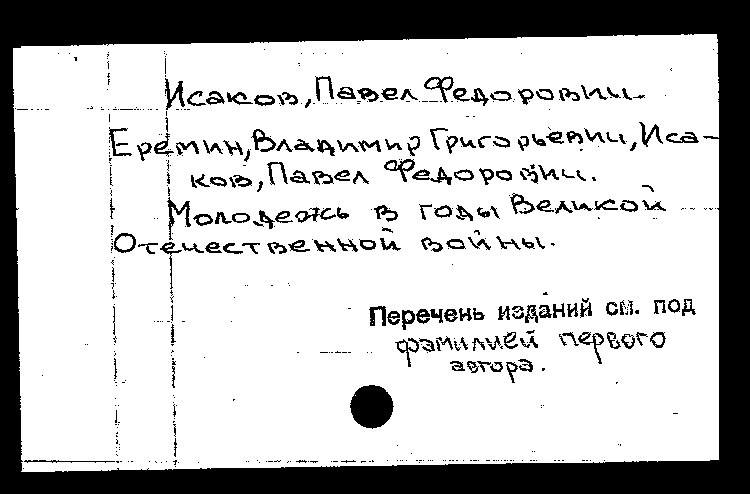 Исаков, Павел Федорович.
Еремин, Владимир Григорьевич, Иса-
ков, Павел Федорович.
Молодежь в годы Великой
Отечественной войны.
Перечень изданий см. под
фамилией первого
автора.